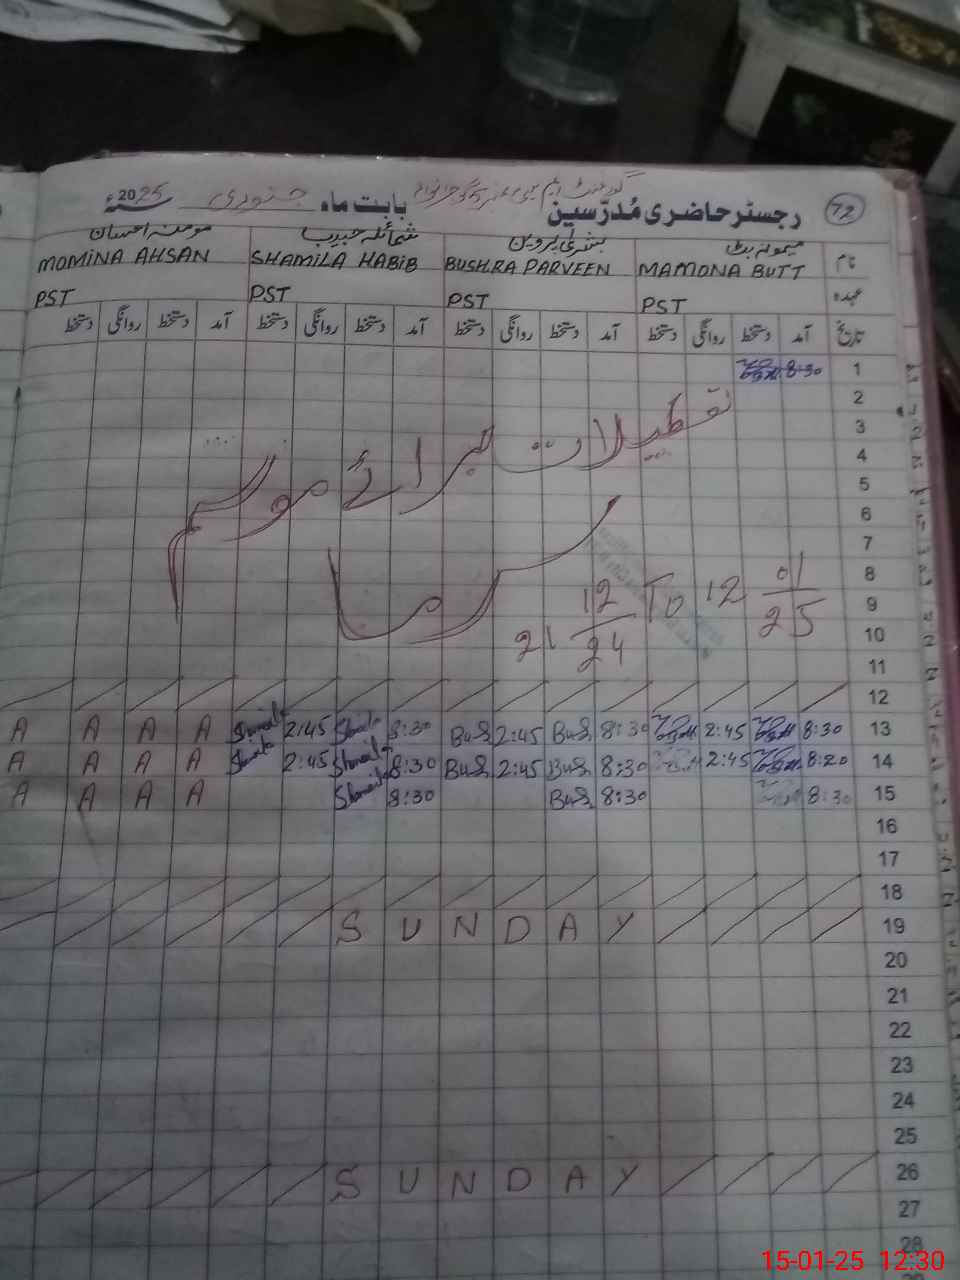 72 رجسٹر حاضری مُدرّسین گورنمنٹ ایم سی بابت ماہ جنوری 2025ء
نام میمونہ بٹ بشریٰ پروین شمائلہ حبیب مومنہ احسان
MOMINA AHSAN SHAMILA HABIB BUSHRA PARVEEN MAMONA BUTT
عہدہ
PST PST PST PST
تاریخ آمد دستخط روانگی دستخط آمد دستخط روانگی دستخط آمد دستخط روانگی دستخط آمد دستخط روانگی دستخط
8:30 1
2
3
تعطیلات برائے موسم
4
5
6
7
سرما
8
21 12/24 To 12 01/25
9
10
11
12
A A A A 2:45 8:30 BuS 2:45 BuS 8:30 2:45 8:30 13
A A A A 2:45 8:30 BuS 2:45 BuS 8:30 2:45 8:20 14
A A A A 8:30 BuS 8:30 8:30 15
16
17
18
SUNDAY 19
20
21
22
23
24
25
SUNDAY 26
27
28
15-01-25 12:30